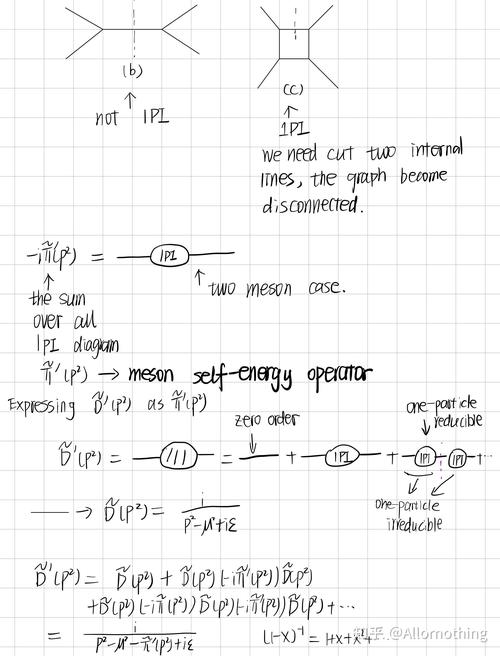 (b)
not 1PI
(c)
1PI
we need cut two internal
lines, the graph become
disconnected.
-iπ̃'(p²) = 1PI
two meson case.
the sum
over all
1PI diagram
π̃'(p²) → meson self-energy operator
Expressing D̃'(p²) as π̃'(p²)
zero order
one-particle
reducible
D̃'(p²) = /// = + 1PI + 1PI 1PI +...
one-particle
irreducible
→ D̃(p²) = i / p²-μ²+iε
D̃'(p²) = D̃(p²) + D̃(p²)(-iπ̃'(p²))D̃(p²)
+D̃(p²)(-iπ̃'(p²))D̃(p²)(-iπ̃'(p²))D̃(p²)+...
= i / p²-μ²-π̃'(p²)+iε
(1-x)⁻¹ = 1+x+x²+
知乎 @Allornothing